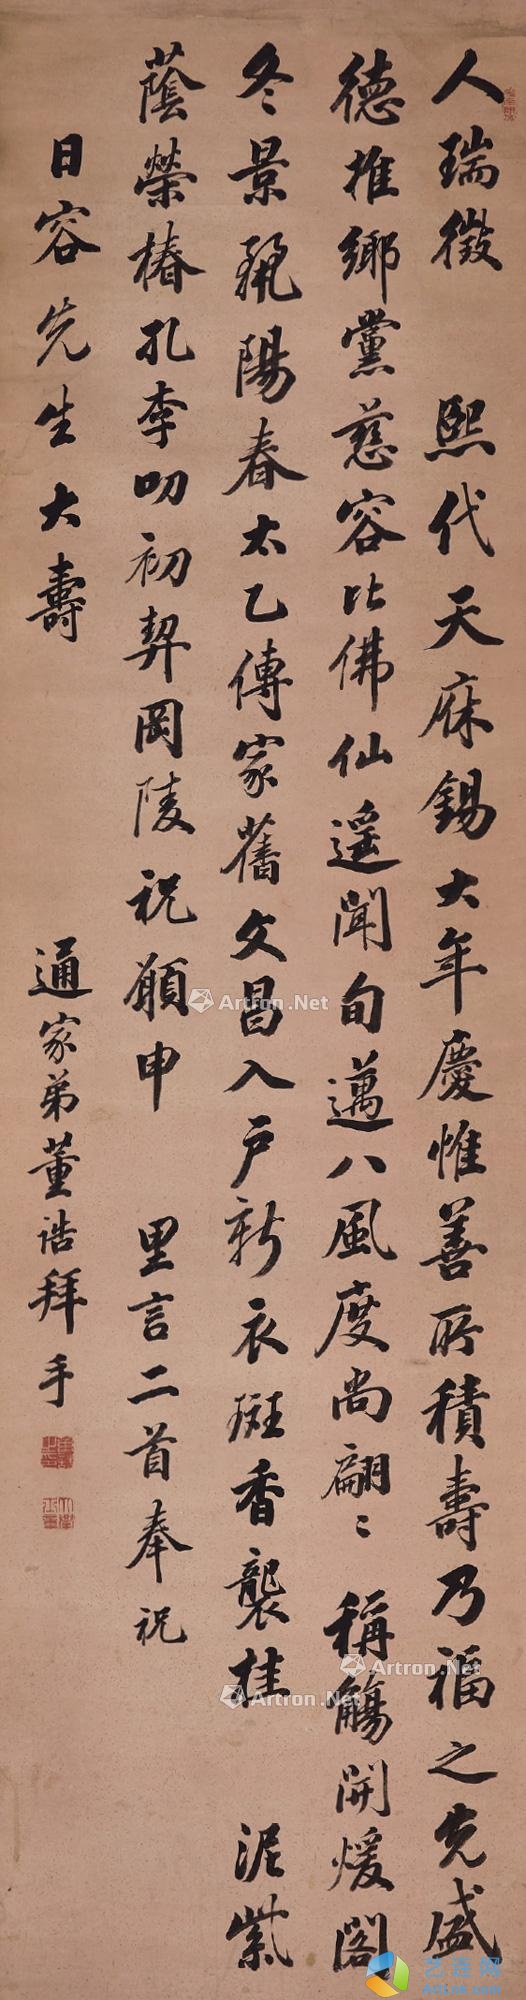 人瑞徵 熙代天庥錫大年慶惟善所積壽乃福之先盛
德推鄉黨慈容比佛仙遥聞旬邁八風度尚翩〻 稱觴開煖閣
冬景㲋陽春太乙傳家舊文昌入戶新衣斑香襲桂 泥紫
蔭榮椿孔李叨初契岡陵祝願申 里言二首奉祝
日容先生大壽 通家弟董誥拜手
Artron.Net
Artron.Net
Artron.Net
艺连网